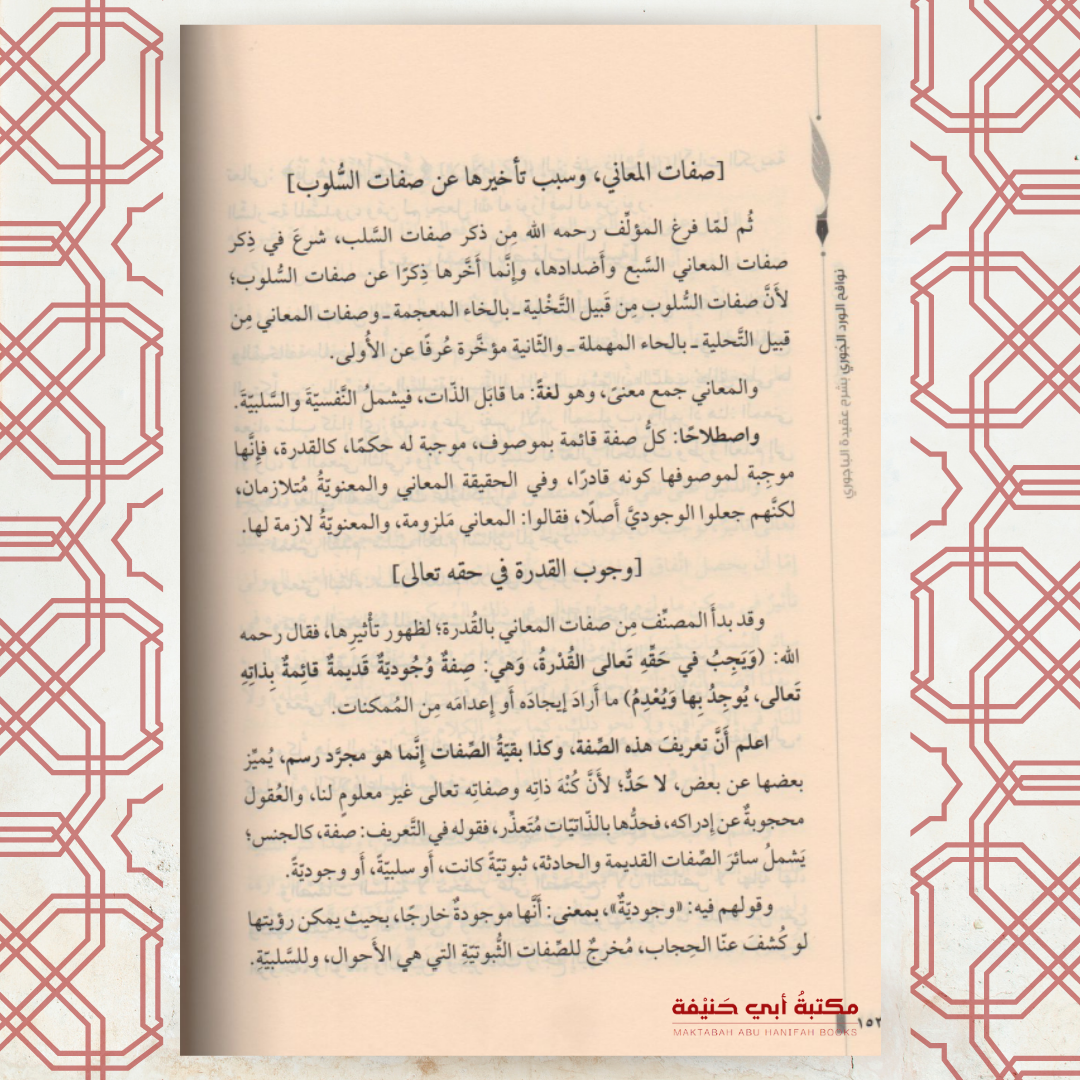 [صفات المعاني، وسبب تأخيرها عن صفات السُّلوب]
ثُم لمّا فرغ المؤلِّف رحمه الله مِن ذكر صفات السَّلب، شرعَ في ذِكر
صفات المعاني السَّبع وأَضدادها، وإِنَّما أَخَّرها ذِكرًا عن صفات السُّلوب؛
لأَنَّ صفات السُّلوب مِن قَبيل التَّخْلية ـ بالخاء المعجمة ـ وصفات المعاني مِن
قبيل التَّحلية ـ بالحاء المهملة ـ والثَّانية مؤخَّرة عُرفًا عن الأُولى.
والمعاني جمع معنىً، وهو لغةً: ما قابَل الذّات، فيشملُ النَّفسيّةَ والسَّلبيّةَ.
واصطلاحًا: كلُّ صفة قائمة بموصوف، موجبة له حكمًا، كالقدرة، فإنَّها
موجِبة لموصوفها كونه قادرًا، وفي الحقيقة المعاني والمعنويّةُ مُتلازمان،
لكنَّهم جعلوا الوجوديَّ أَصلًا، فقالوا: المعاني مَلزومة، والمعنويّةُ لازمة لها.
[وجوب القدرة في حقه تعالى]
وقد بدأَ المصنِّف مِن صفات المعاني بالقُدرة؛ لظهور تأْثيرِها، فقال رحمه
الله: (وَيَجِبُ في حَقِّهِ تَعالى القُدْرةُ، وَهي: صِفةٌ وُجُوديّةٌ قَديمةٌ قائمةٌ بِذاتِهِ
تَعالى، يُوجِدُ بِها وَيُعْدِمُ) ما أَرادَ إيجادَه أَو إعدامَه مِن المُمكنات.
اعلم أَنَّ تعريفَ هذه الصِّفة، وكذا بقيّةُ الصِّفات إنَّما هو مجرَّد رسم، يُميِّز
بعضها عن بعض، لا حَدٌّ؛ لأَنَّ كُنْهَ ذاتِه وصفاتِه تعالى غير معلومٍ لنا، والعُقول
محجوبةٌ عن إدراكه، فحدُّها بالذّاتيّات مُتَعذِّر، فقوله في التَّعريف: صفة، كالجنس؛
يَشملُ سائرَ الصِّفات القديمة والحادثة، ثبوتيّةً كانت، أَو سلبيّةً، أَو وجوديّةً.
وقولهم فيه: «وجوديّةٌ»، بمعنى: أَنَّها موجودةٌ خارجًا، بحيث يمكن رؤيتها
لو كُشفَ عنّا الحِجاب، مُخرجٌ للصِّفات الثُّبوتيّةِ التي هي الأَحوال، وللسَّلبيّةِ.
نوافح الورد الجوري بشرح عقيدة الباجوري
١٥٢
مكتبةُ أبي حَنيْفة
MAKTABAH ABU HANIFAH BOOKS